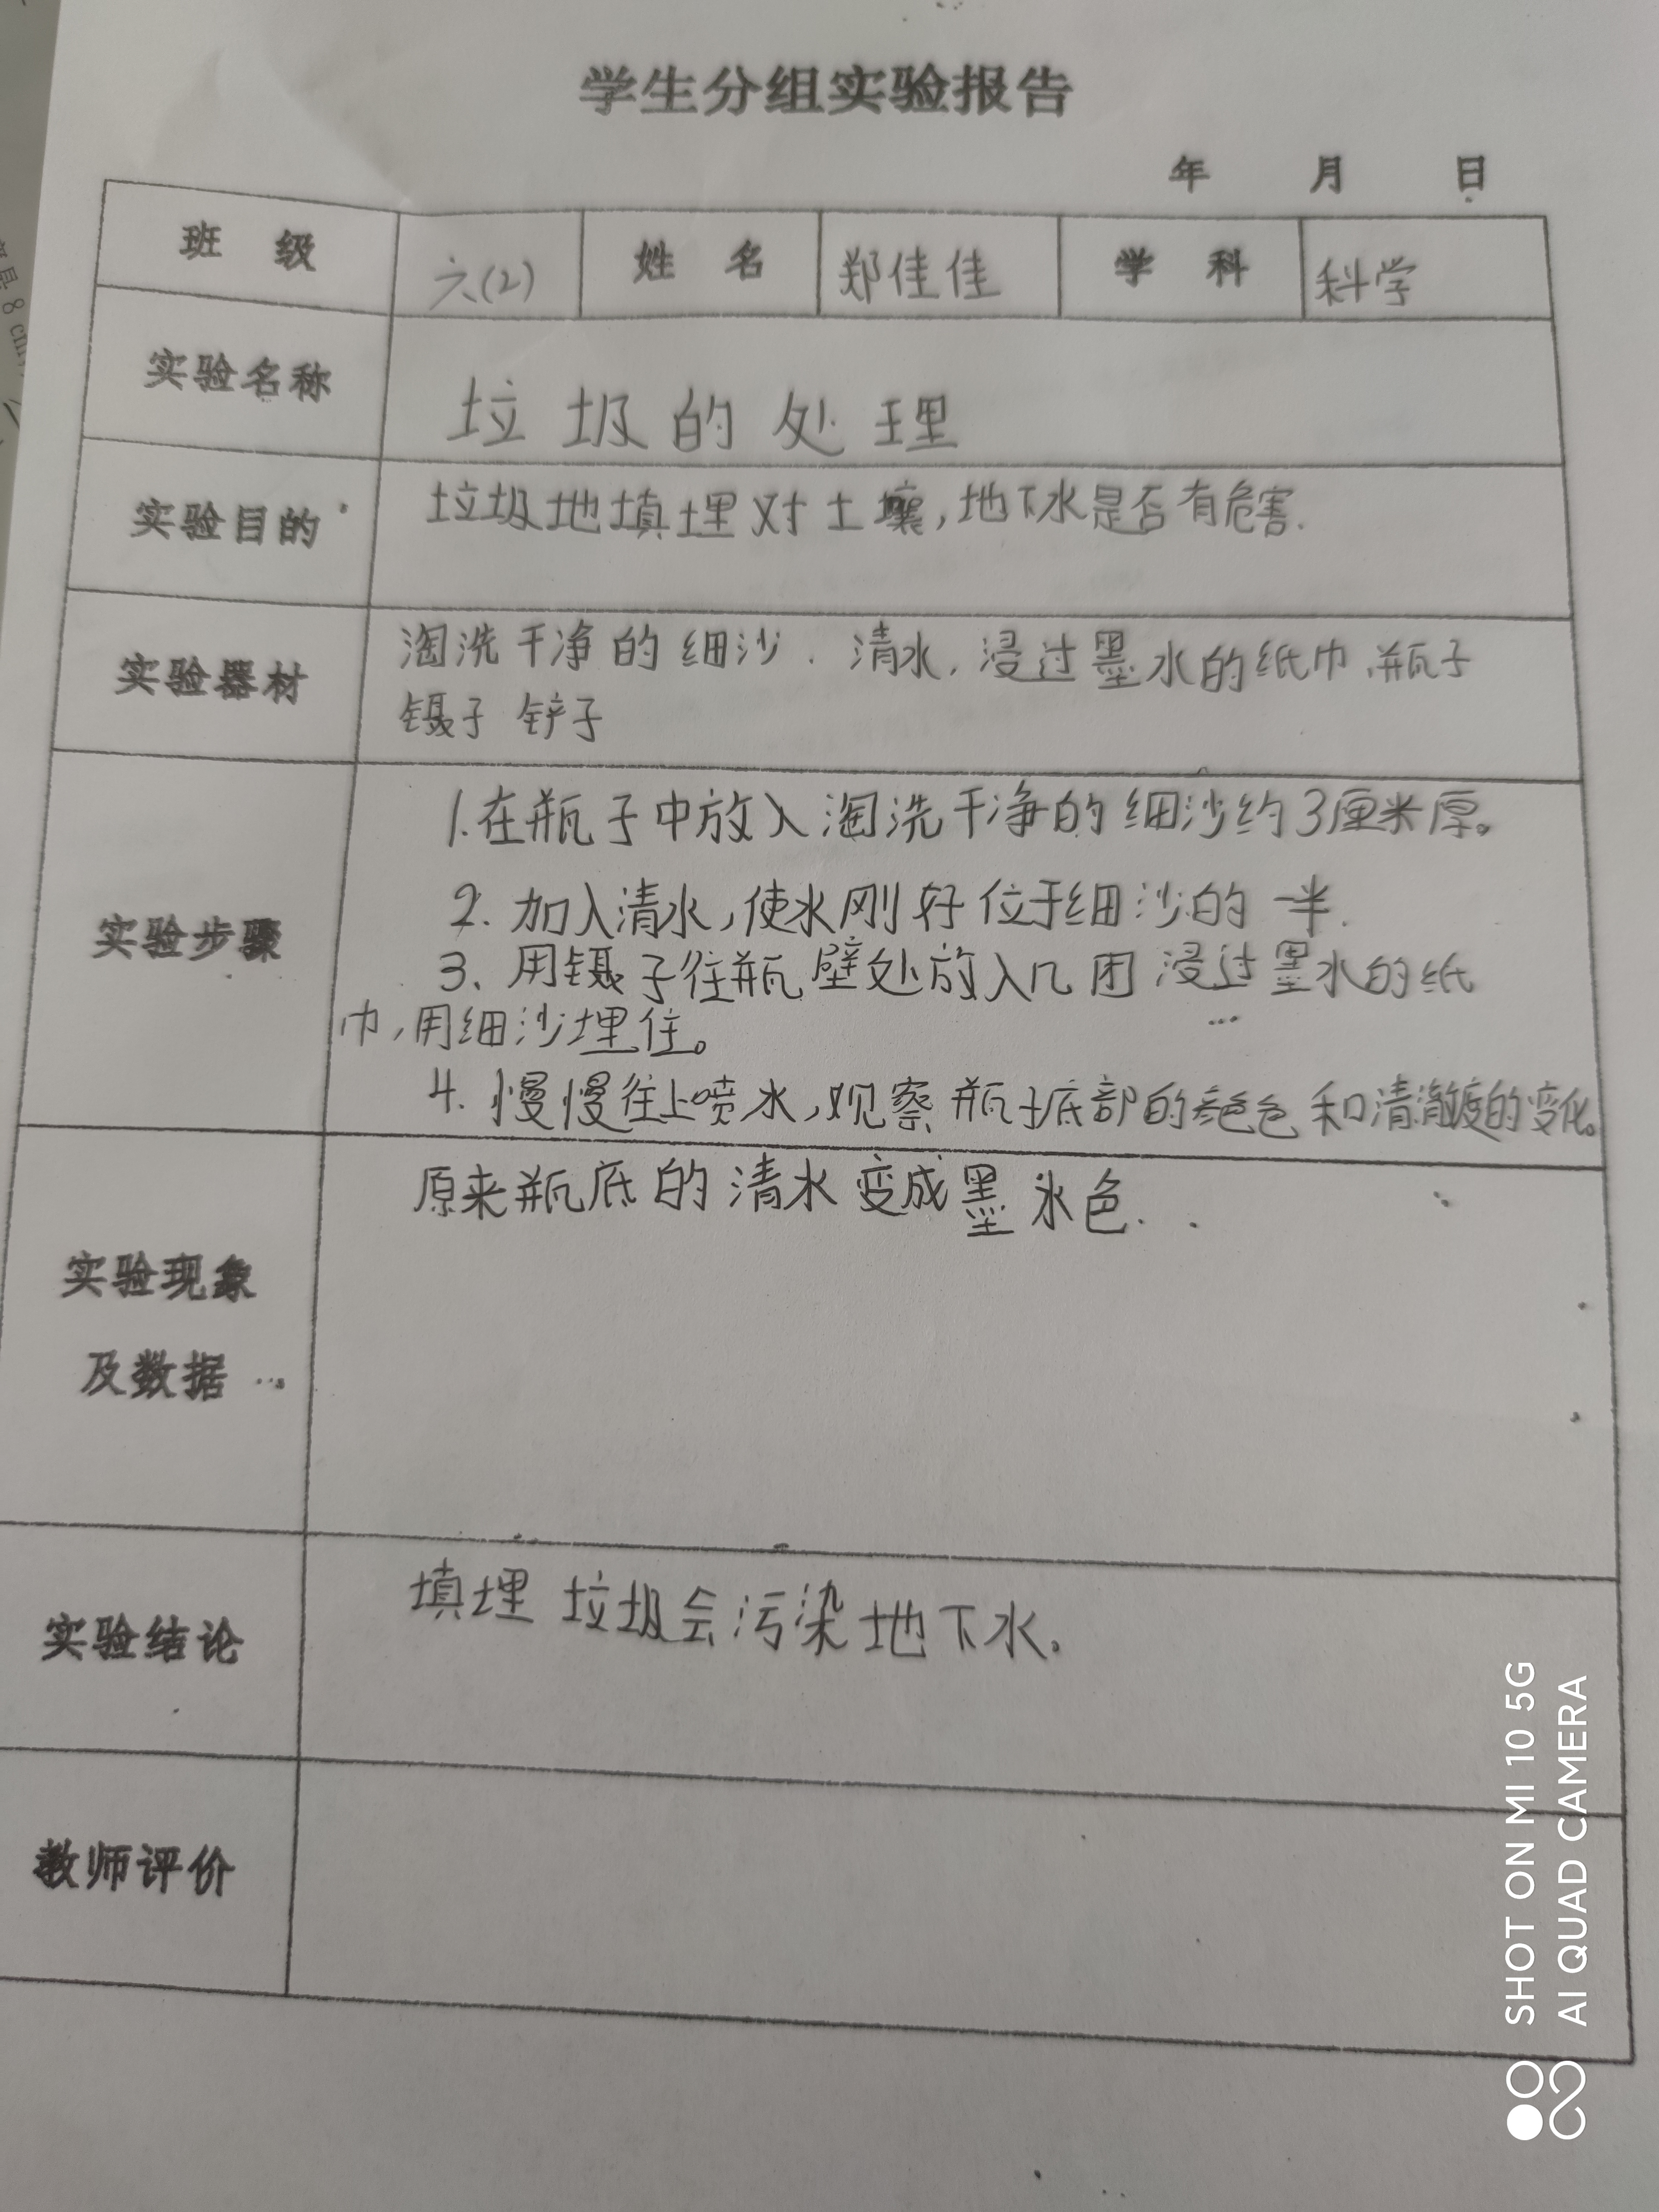 学生分组实验报告
年 月 日
班 级 六(2) 姓 名 郑佳佳 学 科 科学
实验名称 垃圾的处理
实验目的 垃圾地填埋对土壤,地下水是否有危害.
实验器材 淘洗干净的细沙.清水,浸过墨水的纸巾,瓶子
镊子 铲子
实验步骤
1.在瓶子中放入淘洗干净的细沙约3厘米厚。
2.加入清水,使水刚好位于细沙的一半.
3、用镊子往瓶壁处放入几团浸过墨水的纸
巾,用细沙埋住。
4.慢慢往上喷水,观察瓶子底部的颜色和清澈度的变化。
实验现象
及数据
原来瓶底的清水变成墨水色.
实验结论 填埋垃圾会污染地下水.
教师评价
8 cm
SHOT ON MI 10 5G
AI QUAD CAMERA